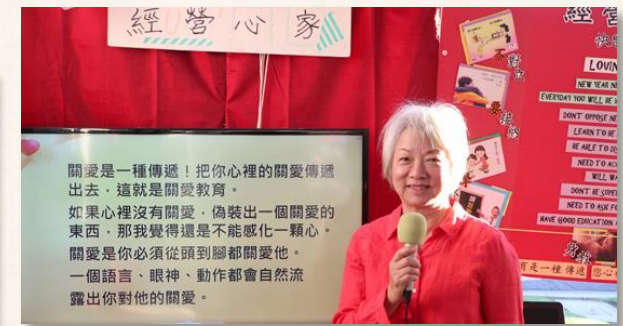 經營心家
關愛是一種傳遞！把你心裡的關愛傳遞
出去，這就是關愛教育。
如果心裡沒有關愛，偽裝出一個關愛的
東西，那我覺得還是不能感化一顆心。
關愛是你必須從頭到腳都關愛他。
一個語言、眼神、動作都會自然流
露出你對他的關愛。
經營
LOVIN
NEW YEAR NE
EVERYDAY YOU WILL BE H
DON'T OPPOSE NE
LEARN TO BE
BE ABLE TO DI
NEED TO AC
WILL WA
DON'T BE SUPE
NEED TO ASK FO
HAVE GOOD EDUCATION
不
對立
要
有是一種傳遞 您心